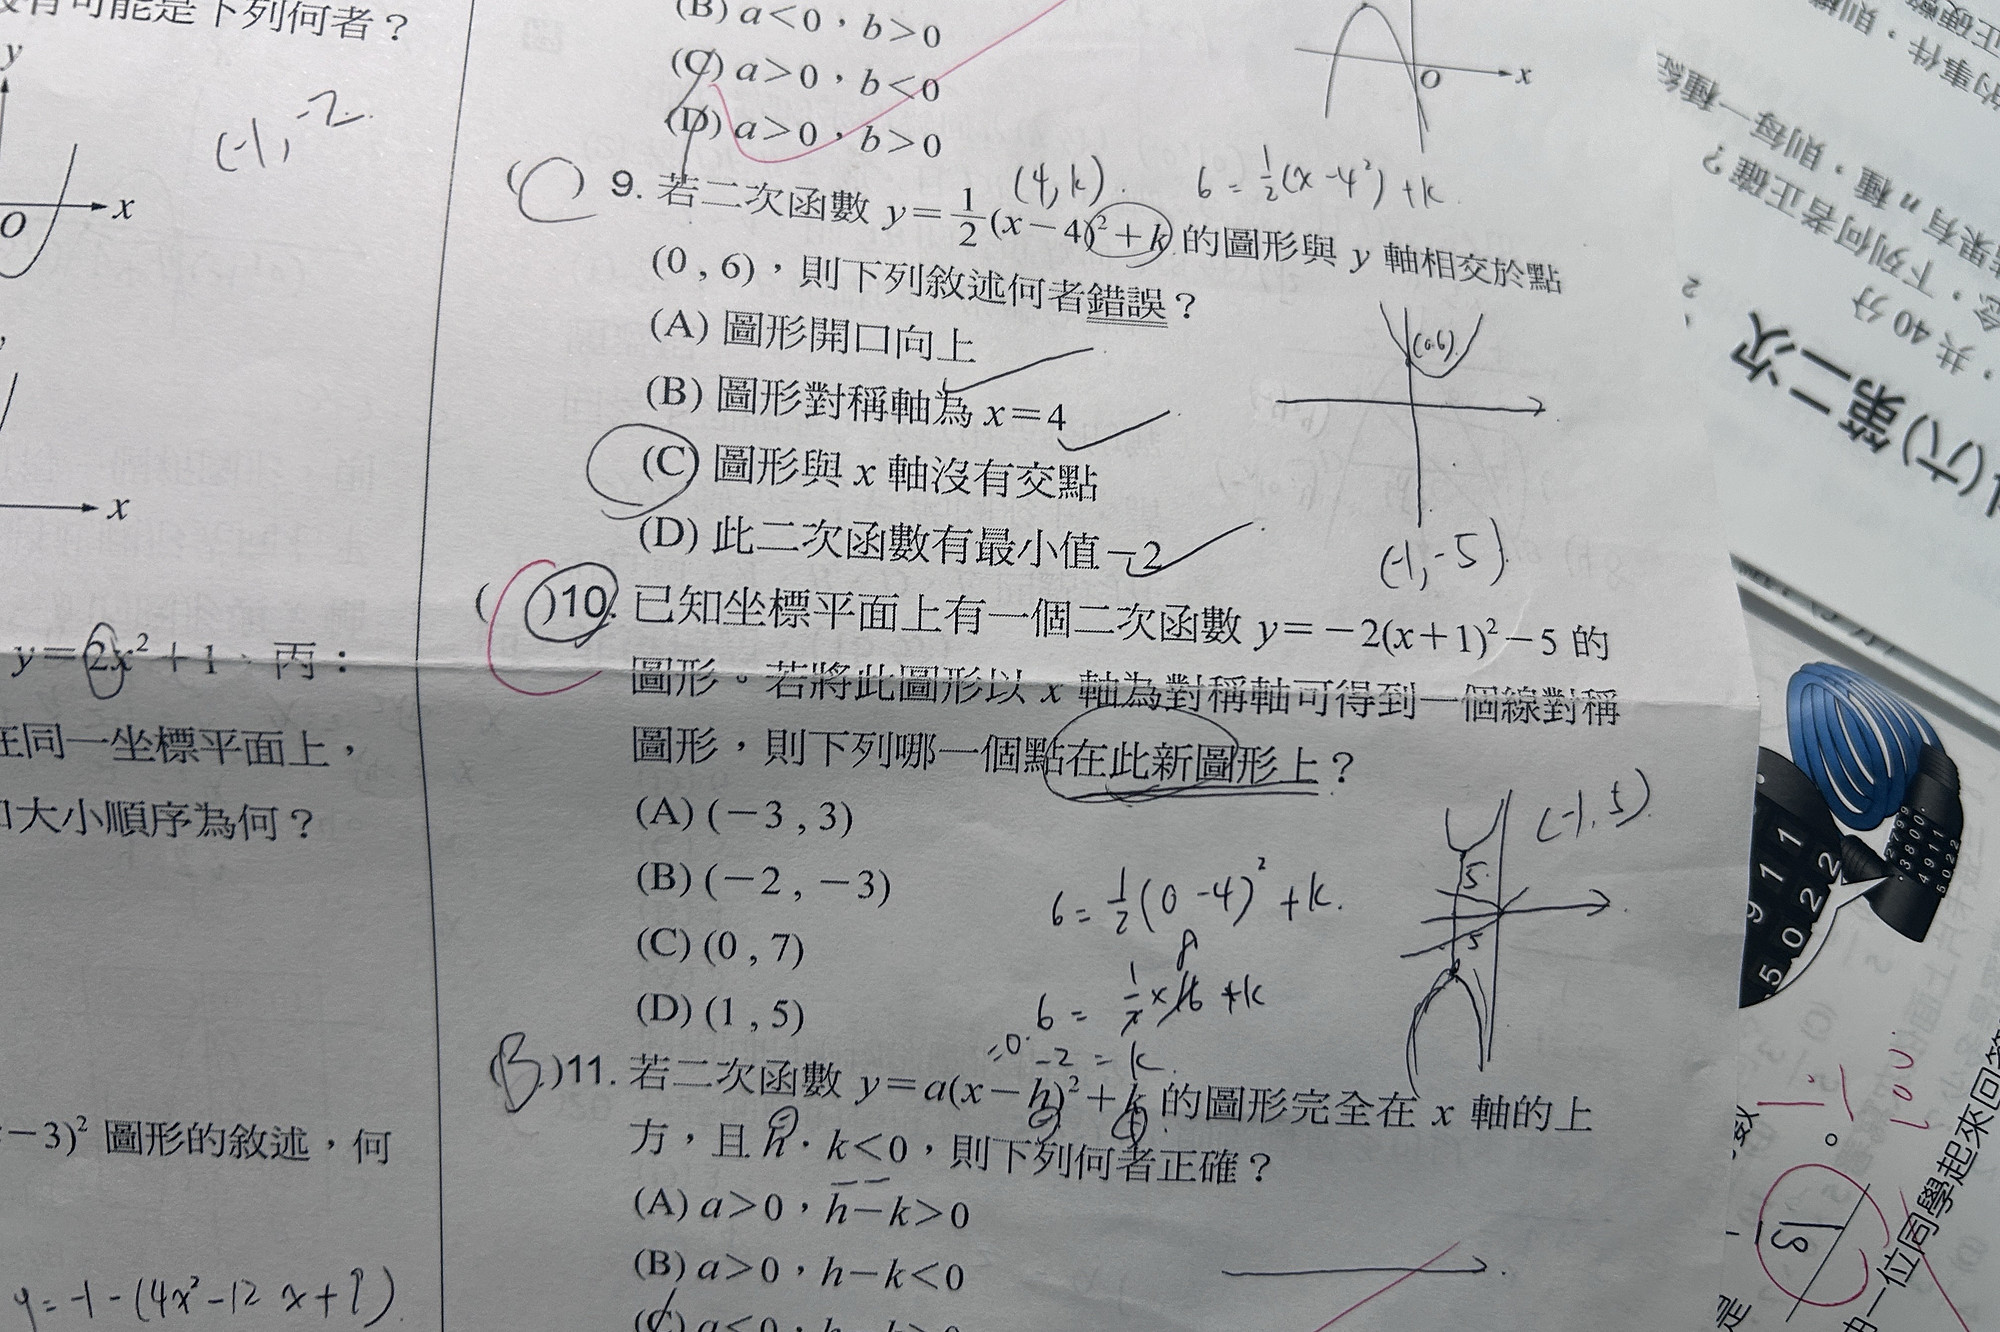 有可能是下列何者？
y
O
x
(-1, -2
x
y=2x²+1、丙：
在同一坐標平面上，
大小順序為何？
-3)² 圖形的敘述，何
y=-1-(4x²-12x+9)
(B) a<0，b>0
(C) a>0，b<0
(D) a>0，b>0
O
x
(4, k)
6=½(x-4²)+k
(C) 9. 若二次函數 y=½(x-4)²+k 的圖形與 y 軸相交於點
(0, 6)，則下列敘述何者錯誤？
(A) 圖形開口向上
(B) 圖形對稱軸為 x=4
(C) 圖形與 x 軸沒有交點
(D) 此二次函數有最小值-2
(0,6)
(-1, -5)
( )10. 已知坐標平面上有一個二次函數 y=-2(x+1)²-5 的
圖形。若將此圖形以 x 軸為對稱軸可得到一個線對稱
圖形，則下列哪一個點在此新圖形上？
(A) (-3, 3)
(B) (-2, -3)
(C) (0, 7)
(D) (1, 5)
(-1, 5)
5
5
6=½(0-4)²+k.
8
6=½×16+k
-2=k
(B)11. 若二次函數 y=a(x-h)²+k 的圖形完全在 x 軸的上
方，且 h·k<0，則下列何者正確？
(A) a>0，h-k>0
(B) a>0，h-k<0
第二次
共 40 分
下列何者正確？
果有 n 種，則每一種
的事件，則
2799
3800
4911
5022
911
5022
100
18
一位同學起來回答
是